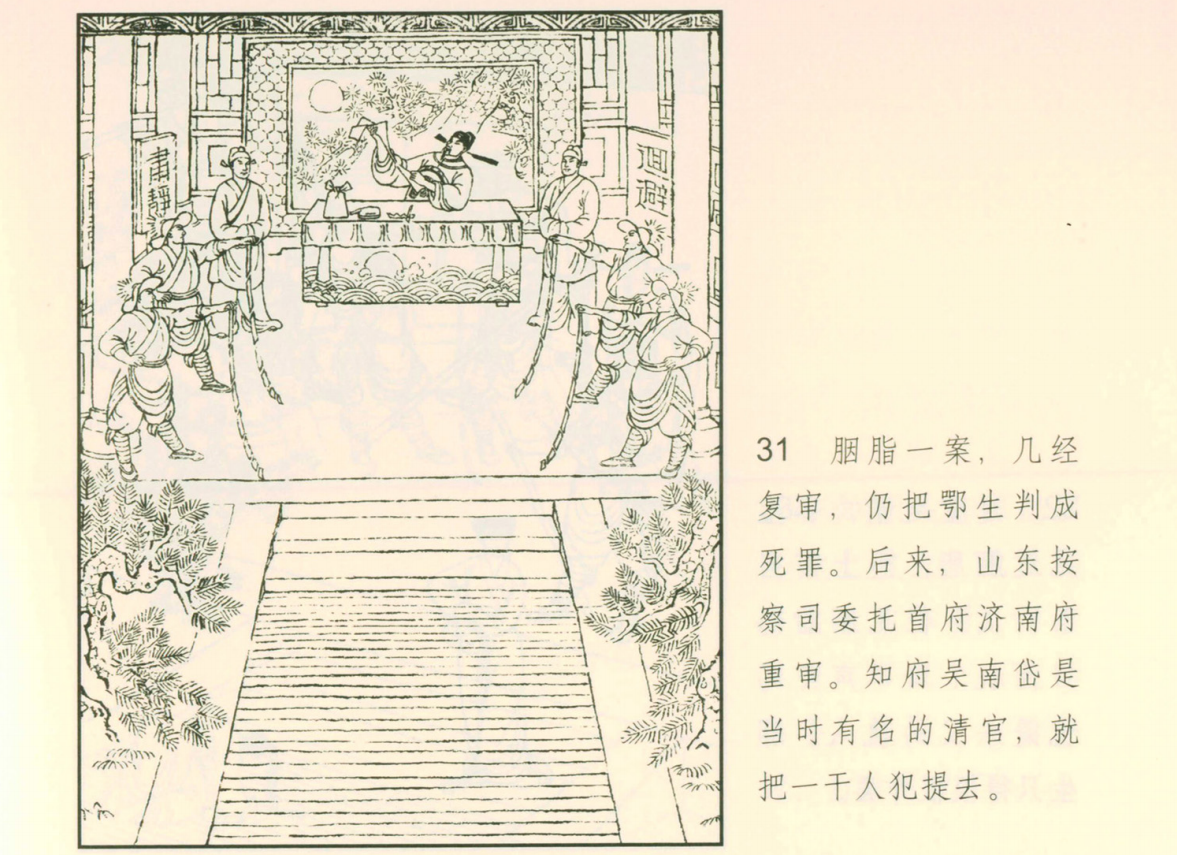 肃静
回避
31 胭脂一案，几经
复审，仍把鄂生判成
死罪。后来，山东按
察司委托首府济南府
重审。知府吴南岱是
当时有名的清官，就
把一干人犯提去。